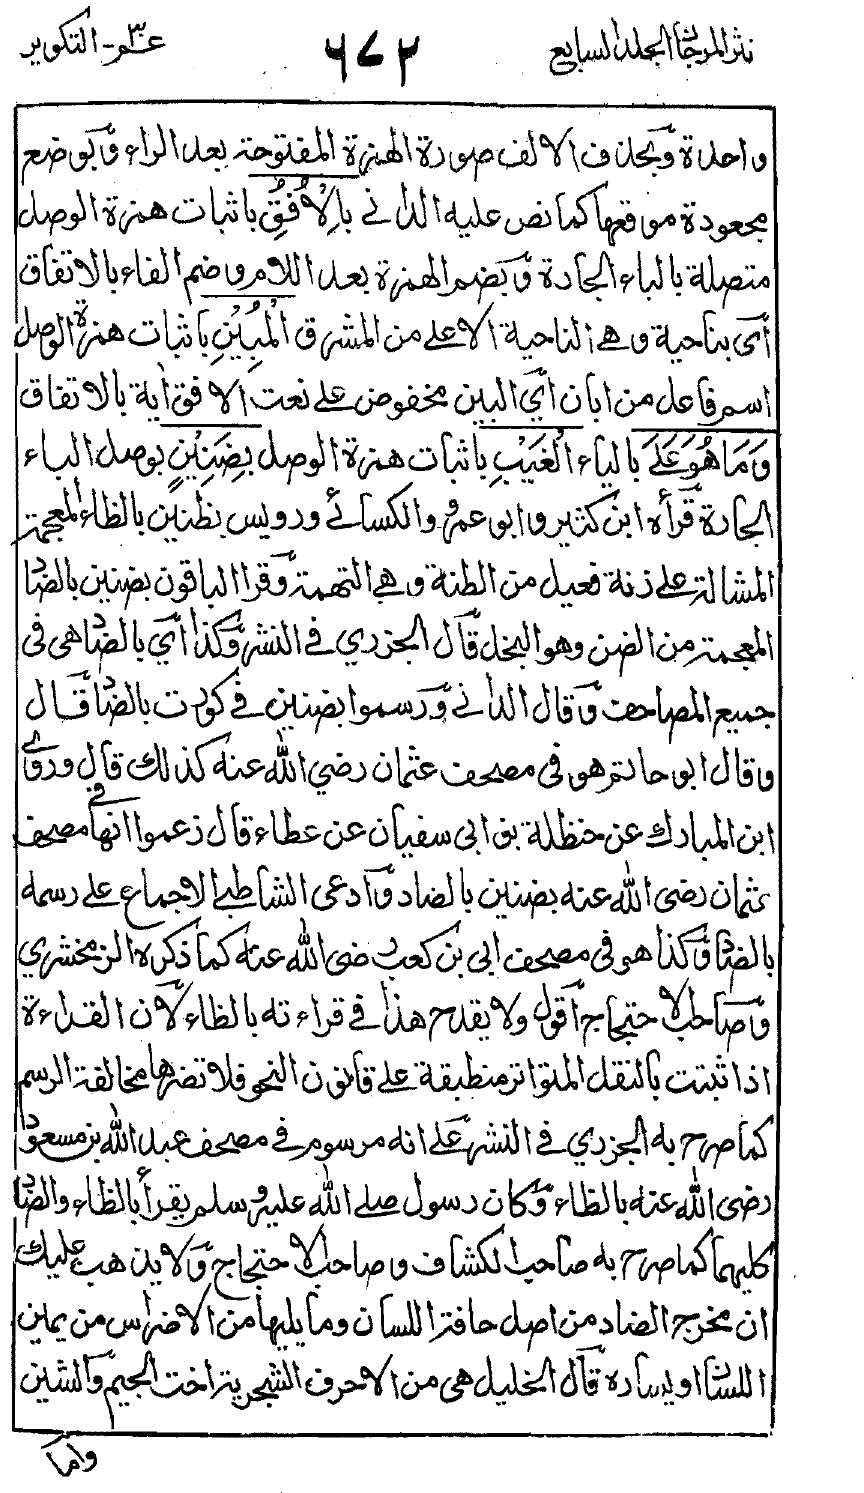 نثر المرجان الجلد السابع
٦٧٢
عم٣ - التكوير
واحدة وبحذف الالف صورة الهمزة المفتوحة بعد الراء وبوضع
مجعودة موقعها كما نص عليه الداني بِالْاُفُقِ باثبات همزة الوصل
متصلة بالباء الجارة وبضم الهمزة بعد اللام وضم الفاء بالاتفاق
أي بناحية وهي الناحية الاعلى من المشرق الْمُبِيْنِ باثبات همزة الوصل
اسم فاعل من ابان أي البين مخفوض على نعت الافق اية بالاتفاق
وَمَا هُوَ عَلَى بالياء الْغَيْبِ باثبات همزة الوصل بِضَنِيْنٍ بوصل الباء
الجارة قرأه ابن كثير وابو عمرو والكسائي ورويس بظنين بالظاء المعجمة
المشالة على زنة فعيل من الظنة وهي التهمة وقرا الباقون بضنين بالضاد
المعجمة من الضن وهو البخل قال الجزري في النشر وكذا أي بالضاد هي في
جميع المصاحف وقال الداني ورسموا بضنين في كورت بالضاد قال
وقال ابو حاتم هو في مصحف عثمان رضي الله عنه كذلك قال وروى
ابن المبارك عن حنظلة بن ابي سفيان عن عطاء قال زعموا انها في مصحف
عثمان رضي الله عنه بضنين بالضاد وادعى الشاطبي الاجماع على رسمه
بالضاد وكذا هو في مصحف ابي بن كعب رضي الله عنه كما ذكره الزمخشري
وصاحب الاحتجاج أقول ولا يقدح هذا في قراءته بالظاء لان القراءة
اذا ثبتت بالنقل المتواتر منطبقة على قانون النحو فلا تضرها مخالفة الرسم
كما صرح به الجزري في النشر على انه مرسوم في مصحف عبد الله بن مسعود
رضي الله عنه بالظاء وكان رسول صلى الله عليه وسلم يقرأ بالظاء والضاد
كليهما كما صرح به صاحب الكشاف وصاحب الاحتجاج ولا يذهب عليك
ان مخرج الضاد من اصل حافة اللسان وما يليها من الاضراس من يمين
اللسان او يساره قال الخليل هي من الاحرف الشجرية اخت الجيم والشين
واما